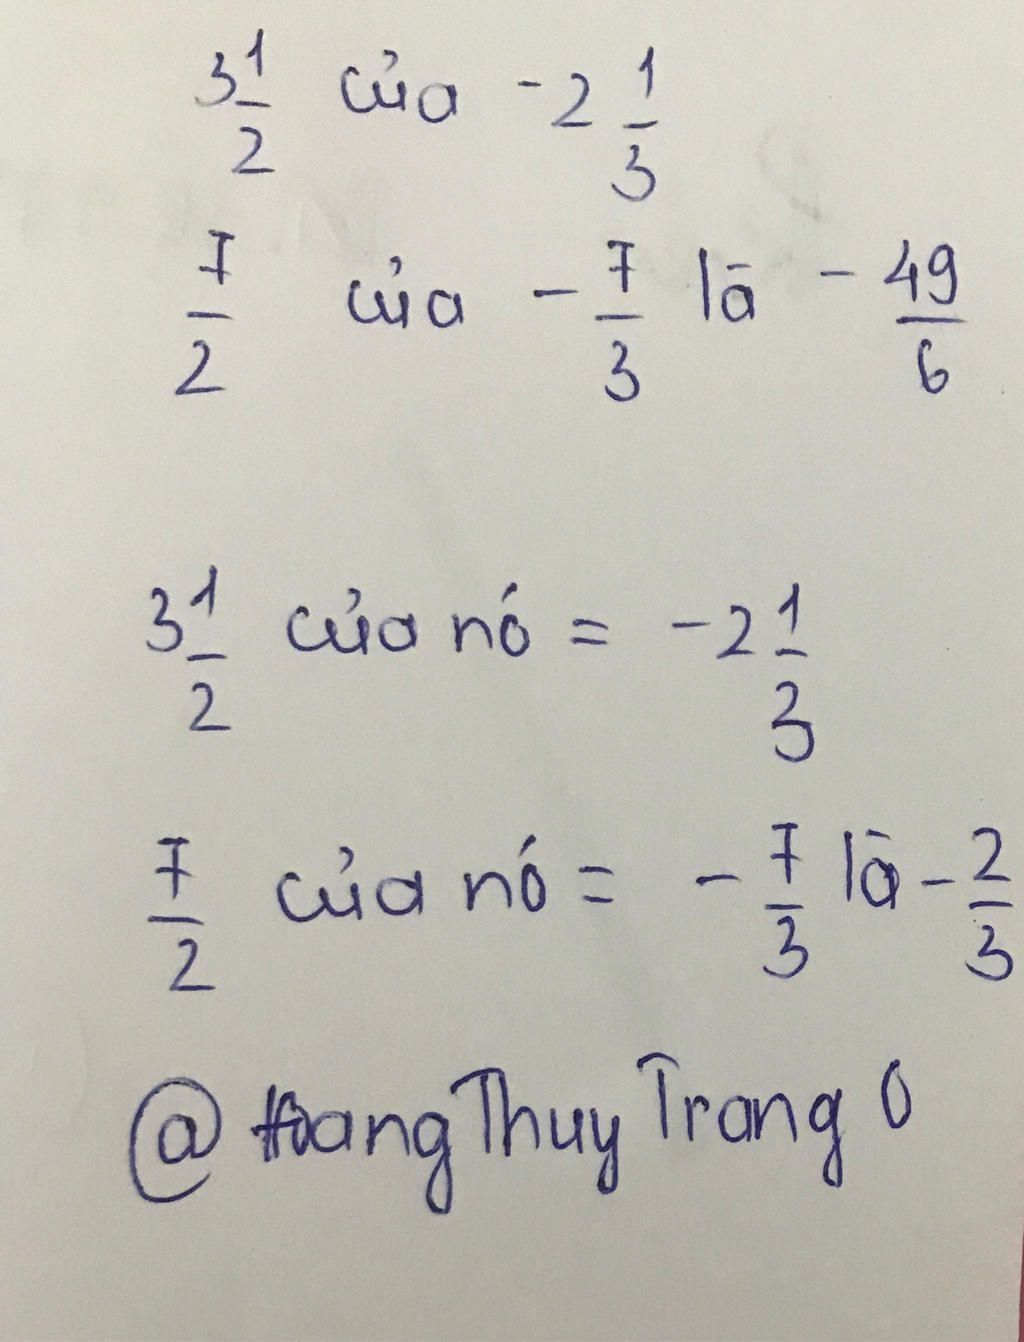 3 1/2 của -2 1/3
7/2 của - 7/3 là - 49/6
3 1/2 của nó = -2 1/3
7/2 của nó = - 7/3 là - 2/3
@ HoangThuyTrang 0